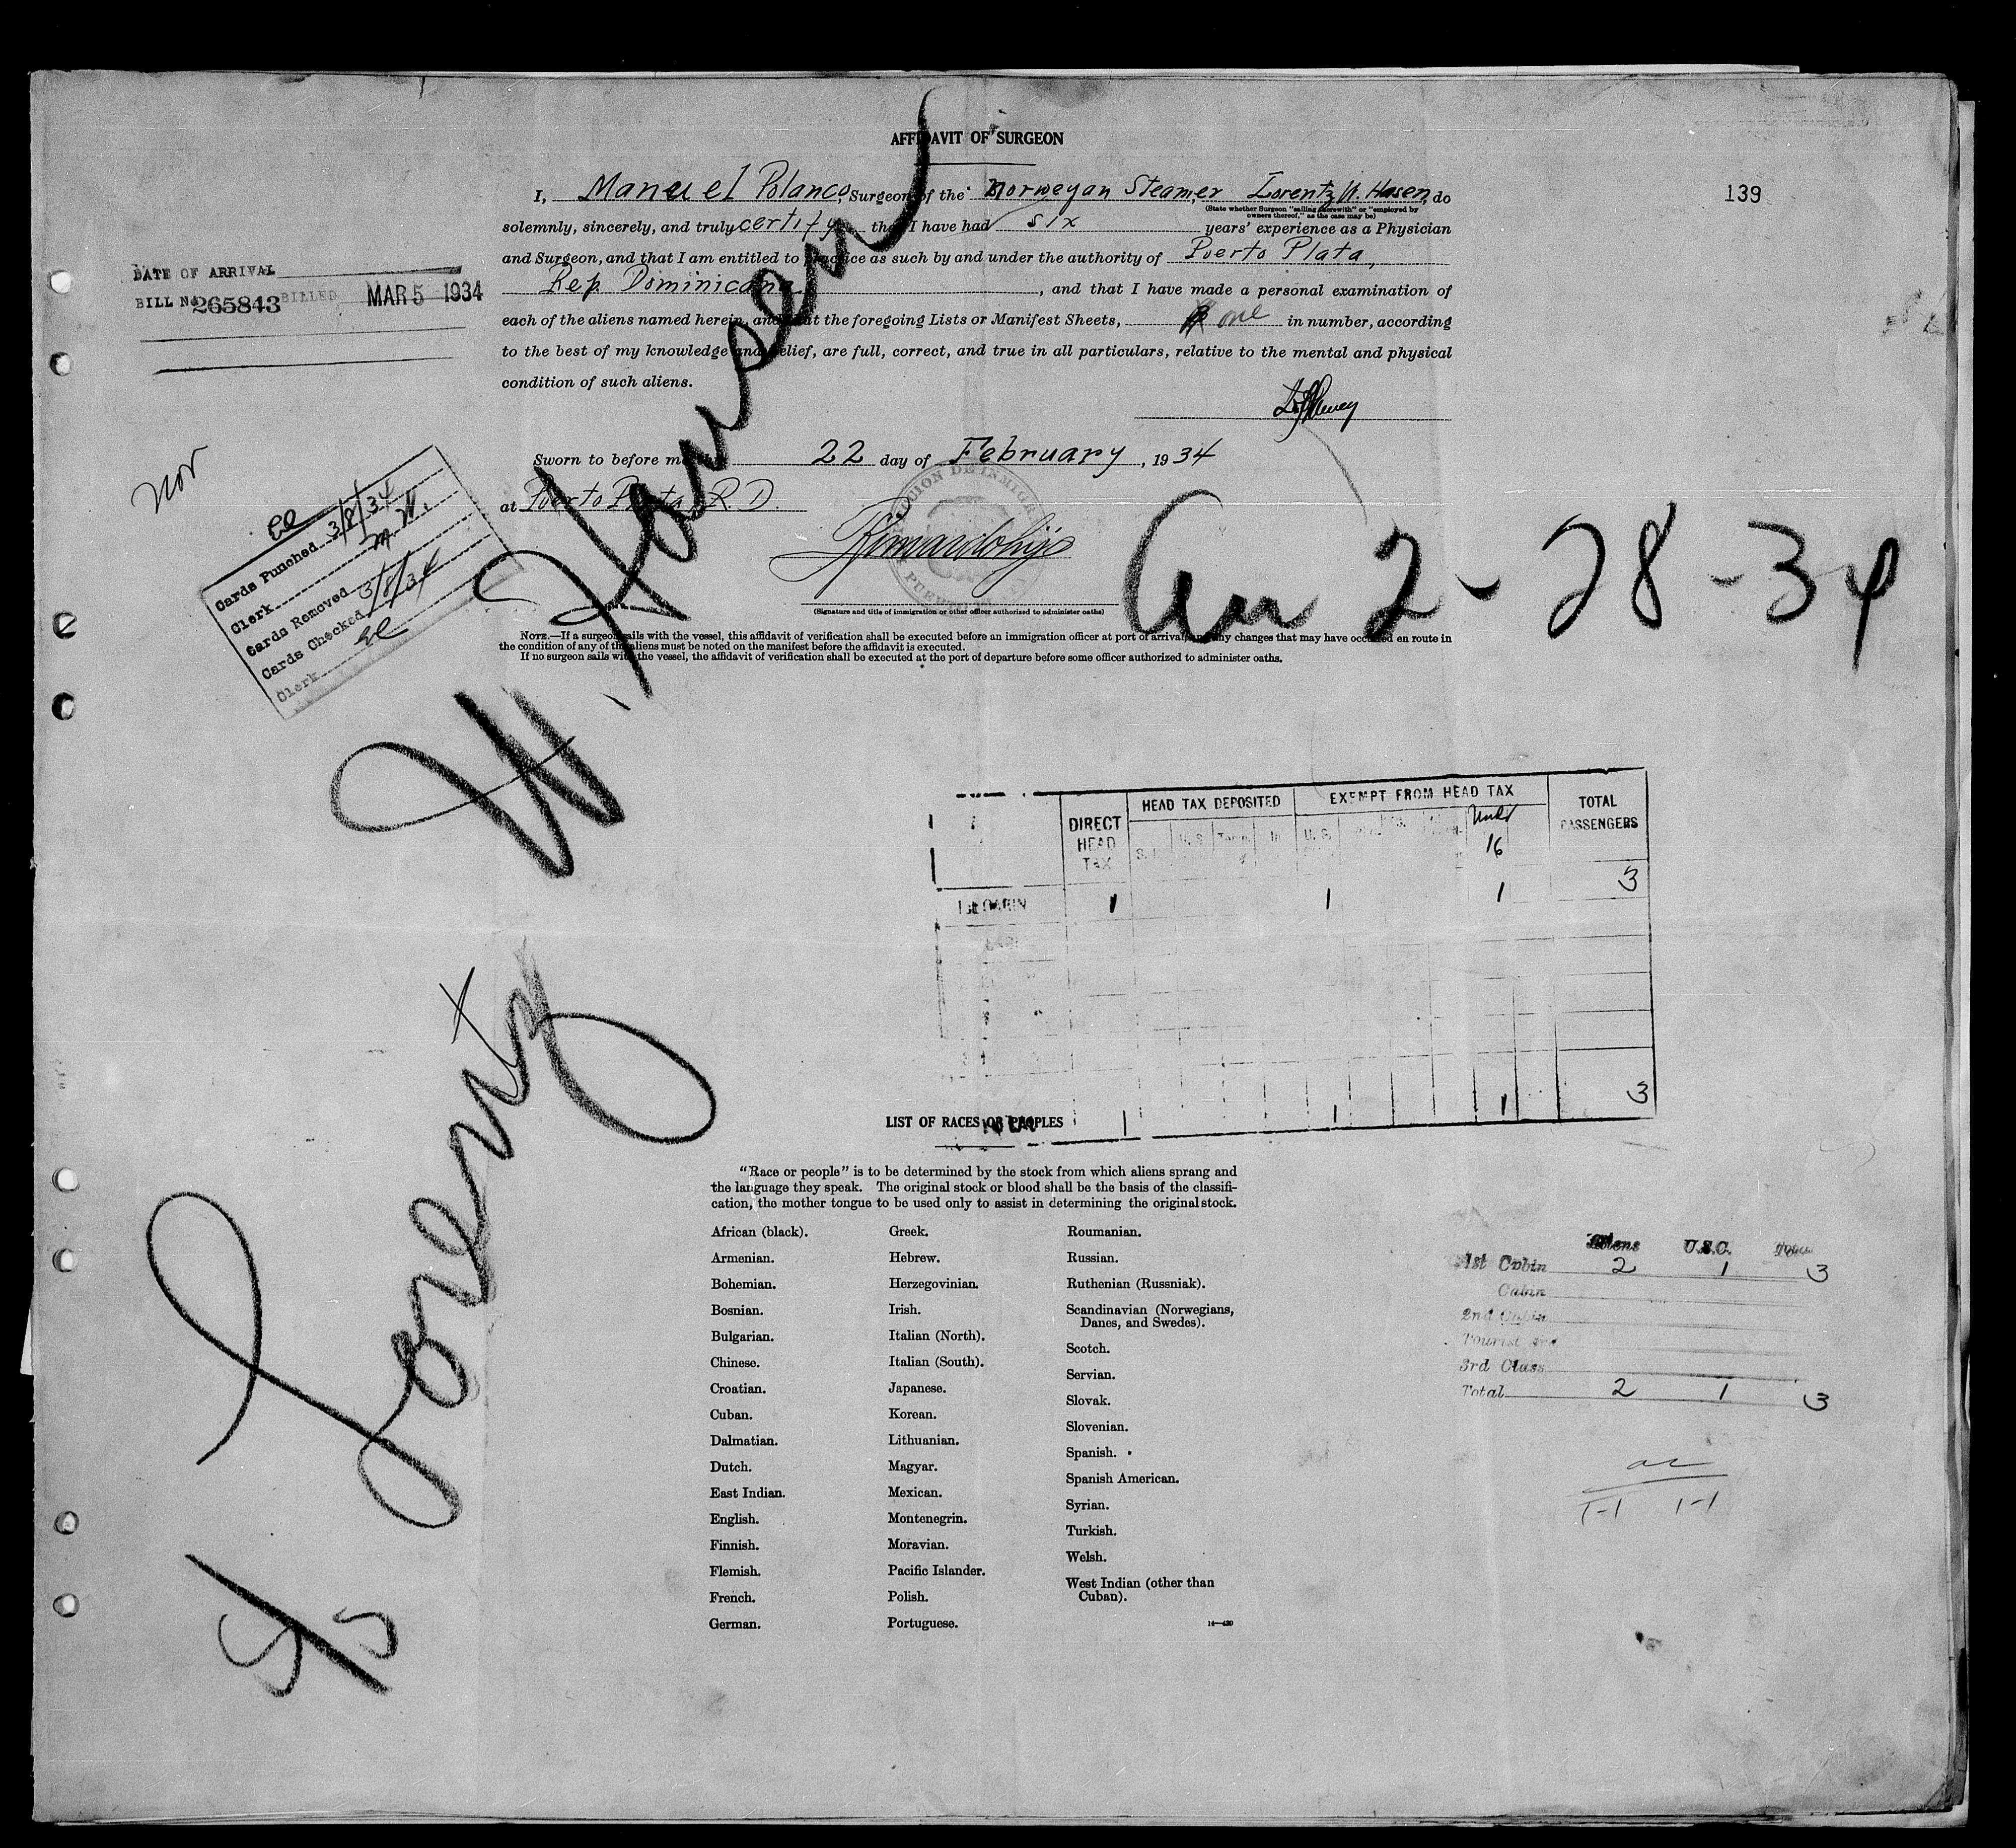 AFFIDAVIT OF SURGEON
139
I, Manuel Polanco, Surgeon of the Norwegian Steamer Lorentz W. Hasen, do
(State whether Surgeon "sailing therewith" or "employed by
owners thereof," as the case may be)
solemnly, sincerely, and truly certify that I have had six years' experience as a Physician
and Surgeon, and that I am entitled to practice as such by and under the authority of Puerto Plata,
Rep. Dominicana, and that I have made a personal examination of
each of the aliens named herein, and that the foregoing Lists or Manifest Sheets, one in number, according
to the best of my knowledge and belief, are full, correct, and true in all particulars, relative to the mental and physical
condition of such aliens.
Sworn to before me 22 day of February, 1934
at Puerto Plata, R.D.
(Signature and title of immigration or other officer authorized to administer oaths)
NOTE.—If a surgeon sails with the vessel, this affidavit of verification shall be executed before an immigration officer at port of arrival, any changes that may have occurred en route in
the condition of any of the aliens must be noted on the manifest before the affidavit is executed.
If no surgeon sails with the vessel, the affidavit of verification shall be executed at the port of departure before some officer authorized to administer oaths.
DATE OF ARRIVAL
BILL No 265843 BILLED MAR 5 1934
Nor
Cards Punched 3/8/34
Clerk M.W.
Cards Removed 3/8/34
Cards Checked
Clerk
S/S Lorentz W. Hansen
Arr 2-28-34
DIRECT HEAD TAX
HEAD TAX DEPOSITED
EXEMPT FROM HEAD TAX
TOTAL PASSENGERS
U.S.
Under 16
3
1st CABIN 1 1 1
1 1 1 3
LIST OF RACES OR PEOPLES
"Race or people" is to be determined by the stock from which aliens sprang and
the language they speak. The original stock or blood shall be the basis of the classifi-
cation, the mother tongue to be used only to assist in determining the original stock.
African (black).
Armenian.
Bohemian.
Bosnian.
Bulgarian.
Chinese.
Croatian.
Cuban.
Dalmatian.
Dutch.
East Indian.
English.
Finnish.
Flemish.
French.
German.
Greek.
Hebrew.
Herzegovinian.
Irish.
Italian (North).
Italian (South).
Japanese.
Korean.
Lithuanian.
Magyar.
Mexican.
Montenegrin.
Moravian.
Pacific Islander.
Polish.
Portuguese.
Roumanian.
Russian.
Ruthenian (Russniak).
Scandinavian (Norwegians,
Danes, and Swedes).
Scotch.
Servian.
Slovak.
Slovenian.
Spanish.
Spanish American.
Syrian.
Turkish.
Welsh.
West Indian (other than
Cuban).
Aliens U.S.C. Total
1st Cabin 2 1 3
Cabin
2nd Cabin
Tourist 3rd
3rd Class
Total 2 1 3
1-1 1-1